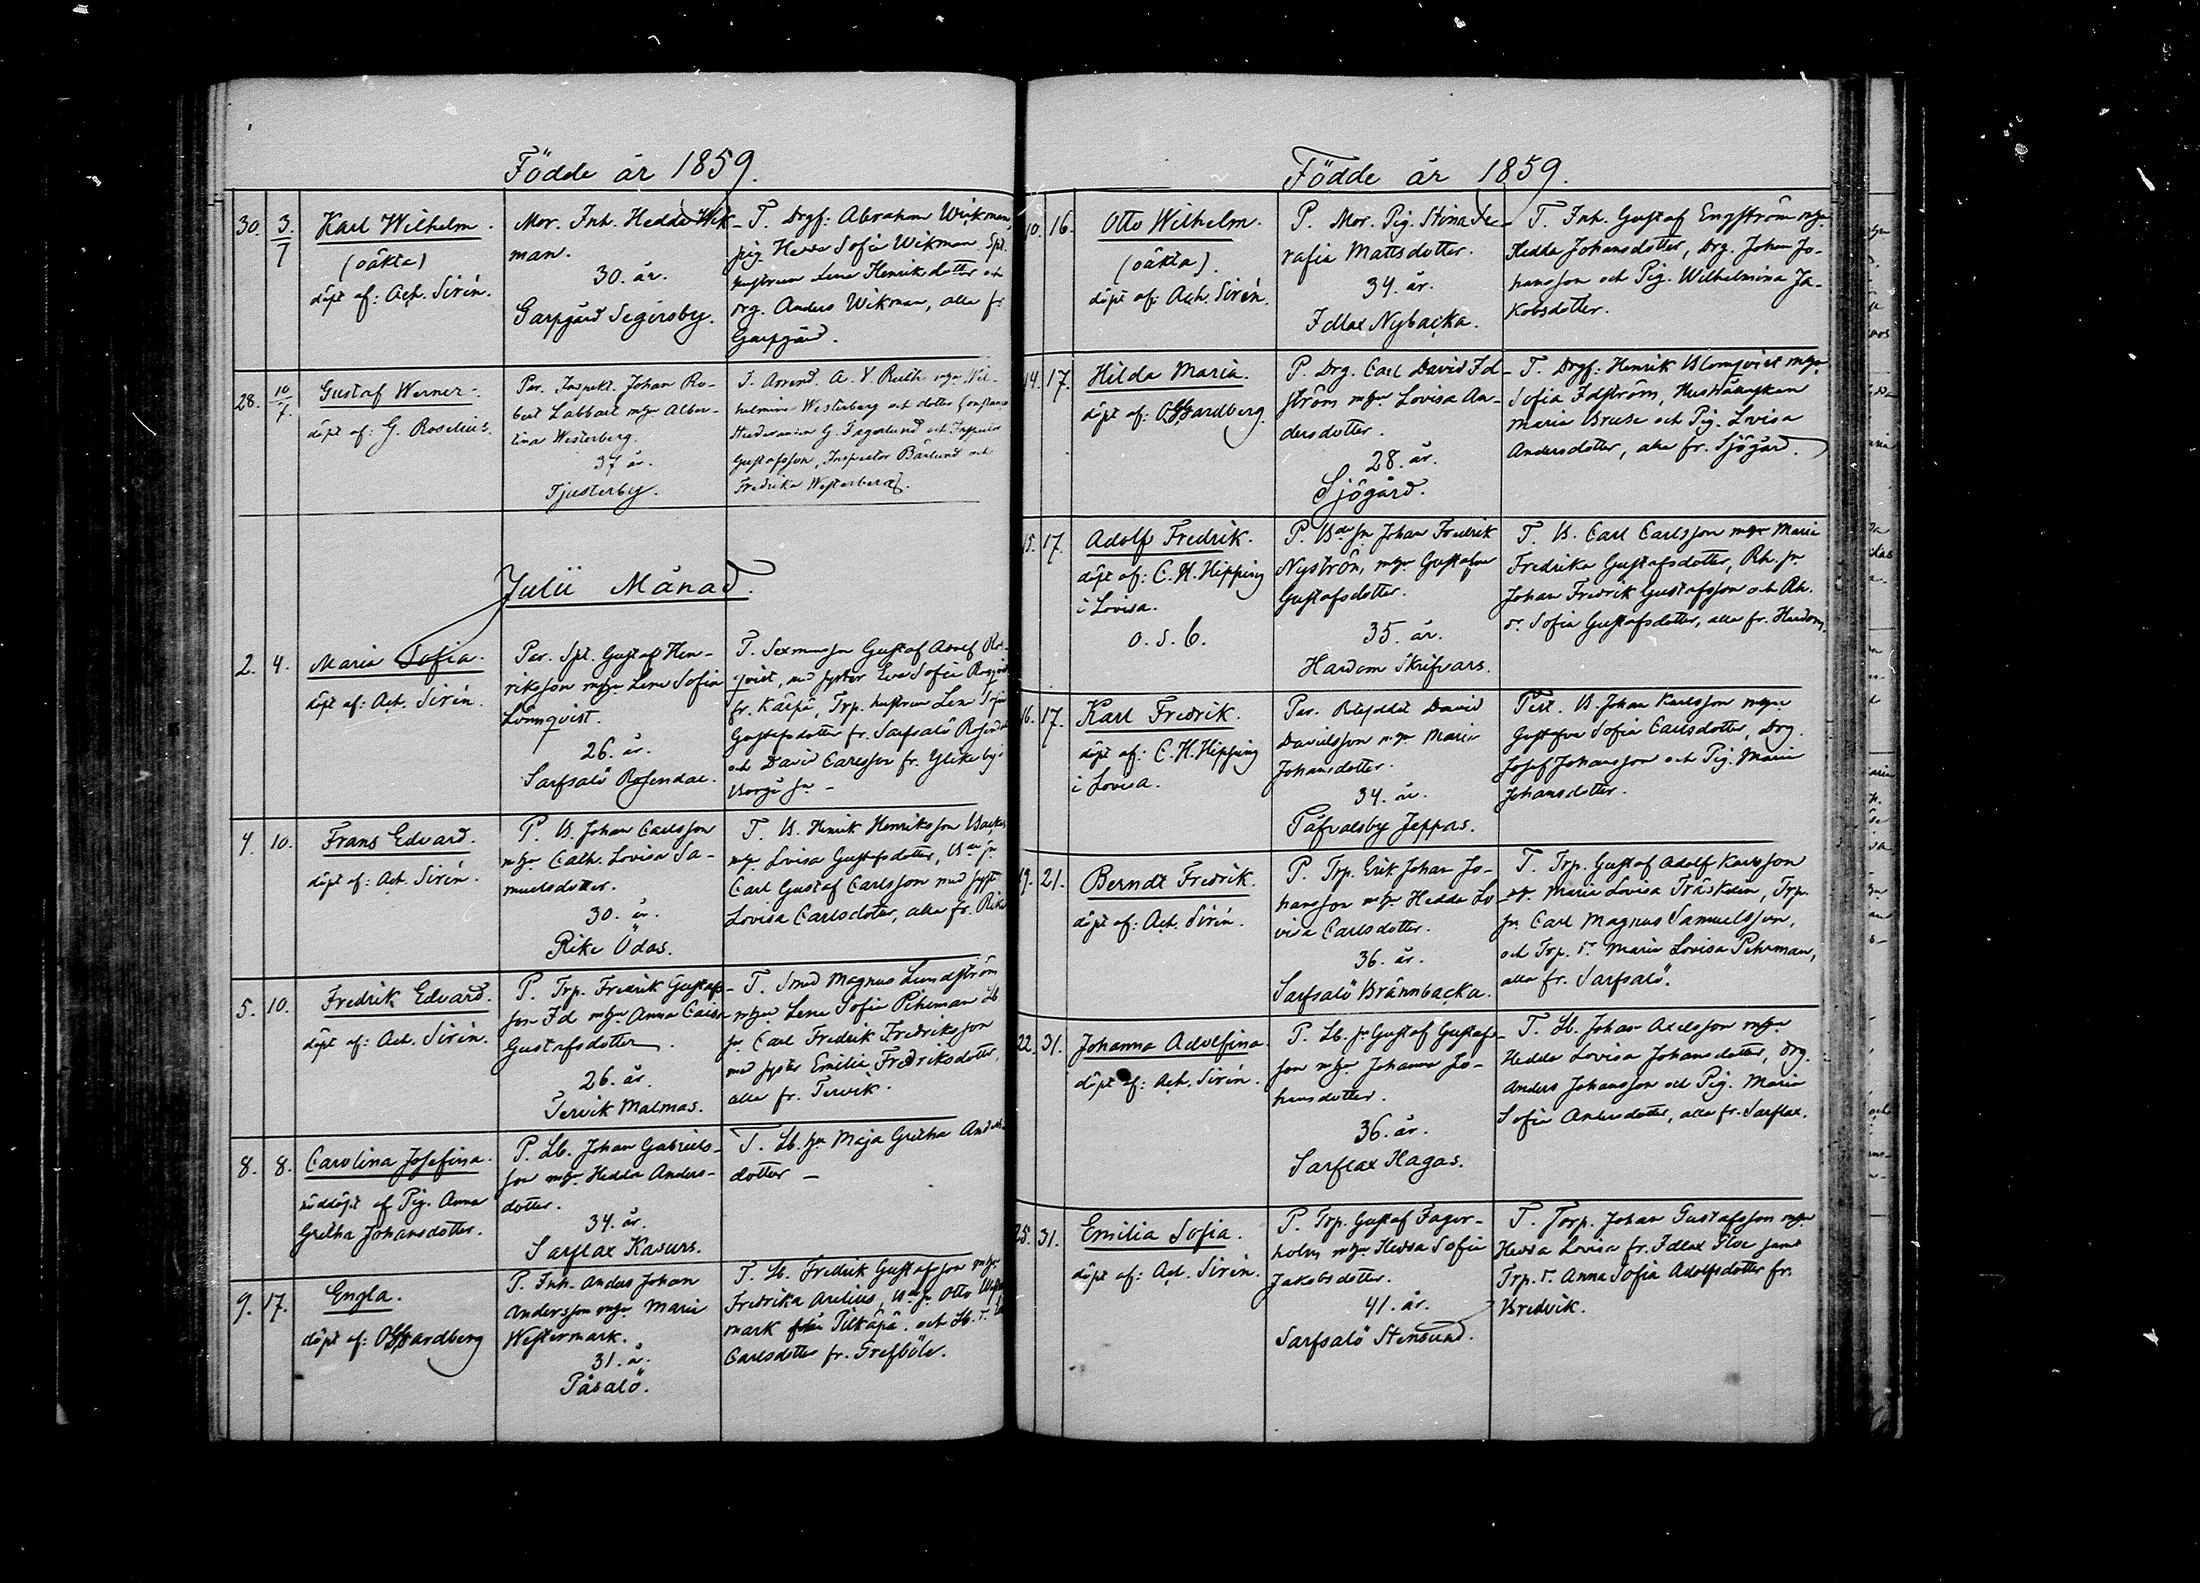 Födde år 1859.
30. 3/7 Karl Wilhelm.
(oäkta)
döpt af: Ach. Sirén.
Mor. Inh. Hedda Wik-
man.
30. år.
Garpgård Segersby.
T. Drgf: Abraham Wickman,
pig. Hedda Sofia Wikman, Spt.
hustrun Lena Henriksdotter och
Drg. Anders Wikman, alla fr.
Garpgård.
28. 10/7. Gustaf Werner.
döpt af: G. Roselius.
Par. Inspekt. Johan Ro-
bert Labbart mhu Alber-
tina Westerberg.
37 år.
Tjusterby.
T. Arrend. A. V. Ruth mhu Wil-
helmina Westerberg och dotter Constance
G. Fagerlund och
Gustafsson, Inspector Bärlund och
Fredrika Westerberg.
Julii Månad.
2. 4. Maria Sofia.
döpt af: Ach. Sirén.
Par. Spt. Gustaf Hen-
riksson mhu Lena Sofia
Lönnqvist.
26. år.
Sarfsalö Rosendal.
T. Sexmansson Gustaf Adolf Ros-
qvist, med syster Eva Sofia Rosqvist
fr. Kärpä, Trp. hustrun Lena Sofia
Gustafsdotter fr. Sarfsalö Rosendal
och David Carlsson fr.
Borgå sn -
4. 10. Frans Edvard.
döpt af: Ach. Sirén.
P. B. Johan Carlsson
mhu Cath. Lovisa Sa-
muelsdotter.
30. år.
Rike Ödas.
T. B. Henrik Henriksson Backas
mhu Lovisa Gustafsdotter, Bde sn
Carl Gustaf Carlsson med syst.
Lovisa Carlsdotter, alla fr. Rike
5. 10. Fredrik Edvard.
döpt af: Ach. Sirén.
P. Trp. Fredrik Gustafs-
son Id mhu Anna Caisa
Gustafsdotter.
26. år.
Tervik Malmas.
T. Smed Magnus Lundström
mhu Lena Sofia Pehrman Lb
sn Carl Fredrik Fredriksson
med syster Emilia Fredriksdotter,
alla fr. Tervik.
8. 8. Carolina Josefina.
nöddöpt af Pig. Anna
Gretha Johansdotter.
P. Lb. Johan Gabriels-
son mhu Hedda Anders-
dotter.
34. år.
Sarflax Kasurs.
T. Lb. hu Maja Gretha Anders-
dotter -
9. 17. Engla.
döpt af: O Hardberg
P. Inh. Anders Johan
Andersson mhu Maria
Westermark.
31. år.
Påsalö.
T. Lb. Fredrik Gustafsson mhu
Fredrika Arelius, Bde sn Otto Wester-
mark från Pitkäpä. och Lb. d.
Carlsdotter fr. Grefböle.
Födde år 1859.
10. 16. Otto Wilhelm.
(oäkta).
döpt af: Ach. Sirén.
P. Mor. Pig. Stina Se-
rafia Mattsdotter.
34. år.
Idlax Nybacka.
T. Inh. Gustaf Engström mhu
Hedda Johansdotter, Drg. Johan Jo-
hansson och Pig. Wilhelmina Ja-
kobsdotter.
14. 17. Hilda Maria.
döpt af: O Hardberg.
P. Drg. Carl David Id-
ström mhu Lovisa An-
dersdotter.
28. år.
Sjögård.
T. Drgf: Henrik Blomqvist mhu
Sofia Idström,
Maria Bruse och Pig. Lovisa
Andersdotter, alla fr. Sjögård.
15. 17. Adolf Fredrik.
döpt af: C. H. Hipping
i Lovisa.
o. s. b.
P. Bde sn Johan Fredrik
Nyström, mhu Gustafva
Gustafsdotter.
35. år.
Hardom Skrifvars.
T. B. Carl Carlsson mhu Maria
Fredrika Gustafsdotter, Rh. sn
Johan Fredrik Gustafsson och Rh.
d. Sofia Gustafsdotter, alla fr. Hardom.
16. 17. Karl Fredrik.
döpt af: C. H. Hipping
i Lovisa.
Par. David
Davidsson mhu Maria
Johansdotter.
34. år.
Påfvalsby Jeppas.
Test. B. Johan Karlsson mhu
Gustafva Sofia Carlsdotter, Drg.
Josef Johansson och Pig. Maria
Johansdotter.
19. 21. Berndt Fredrik.
döpt af: Ach. Sirén.
P. Trp. Erik Johan Jo-
hansson mhu Hedda Lo-
visa Carlsdotter.
36. år.
Sarfsalö Brännbacka.
T. Trp. Gustaf Adolf Karlsson
mhu Maria Lovisa Träskelin, Trp.
sn Carl Magnus Samuelsson,
och Trp. d. Maria Lovisa Pehrman,
alla fr. Sarfsalö.
22. 31. Johanna Adolfina
döpt af: Ach. Sirén.
P. Lb. sn Gustaf Gustafs-
son mhu Johanna Jo-
hansdotter.
36. år.
Sarflax Hagas.
T. Lb. Johan Axelsson mhu
Hedda Lovisa Johansdotter, Drg.
Anders Johansson och Pig. Maria
Sofia Andersdotter, alla fr. Sarflax.
25. 31. Emilia Sofia.
döpt af: Ach. Sirén.
P. Trp. Gustaf Fager-
holm mhu Hedda Sofia
Jakobsdotter.
41. år.
Sarfsalö Stensund.
T. Torp. Johan Gustafsson mhu
Hedda Lovisa fr. Idlax samt
Trp. d. Anna Sofia Adolfsdotter fr.
Bredvik.